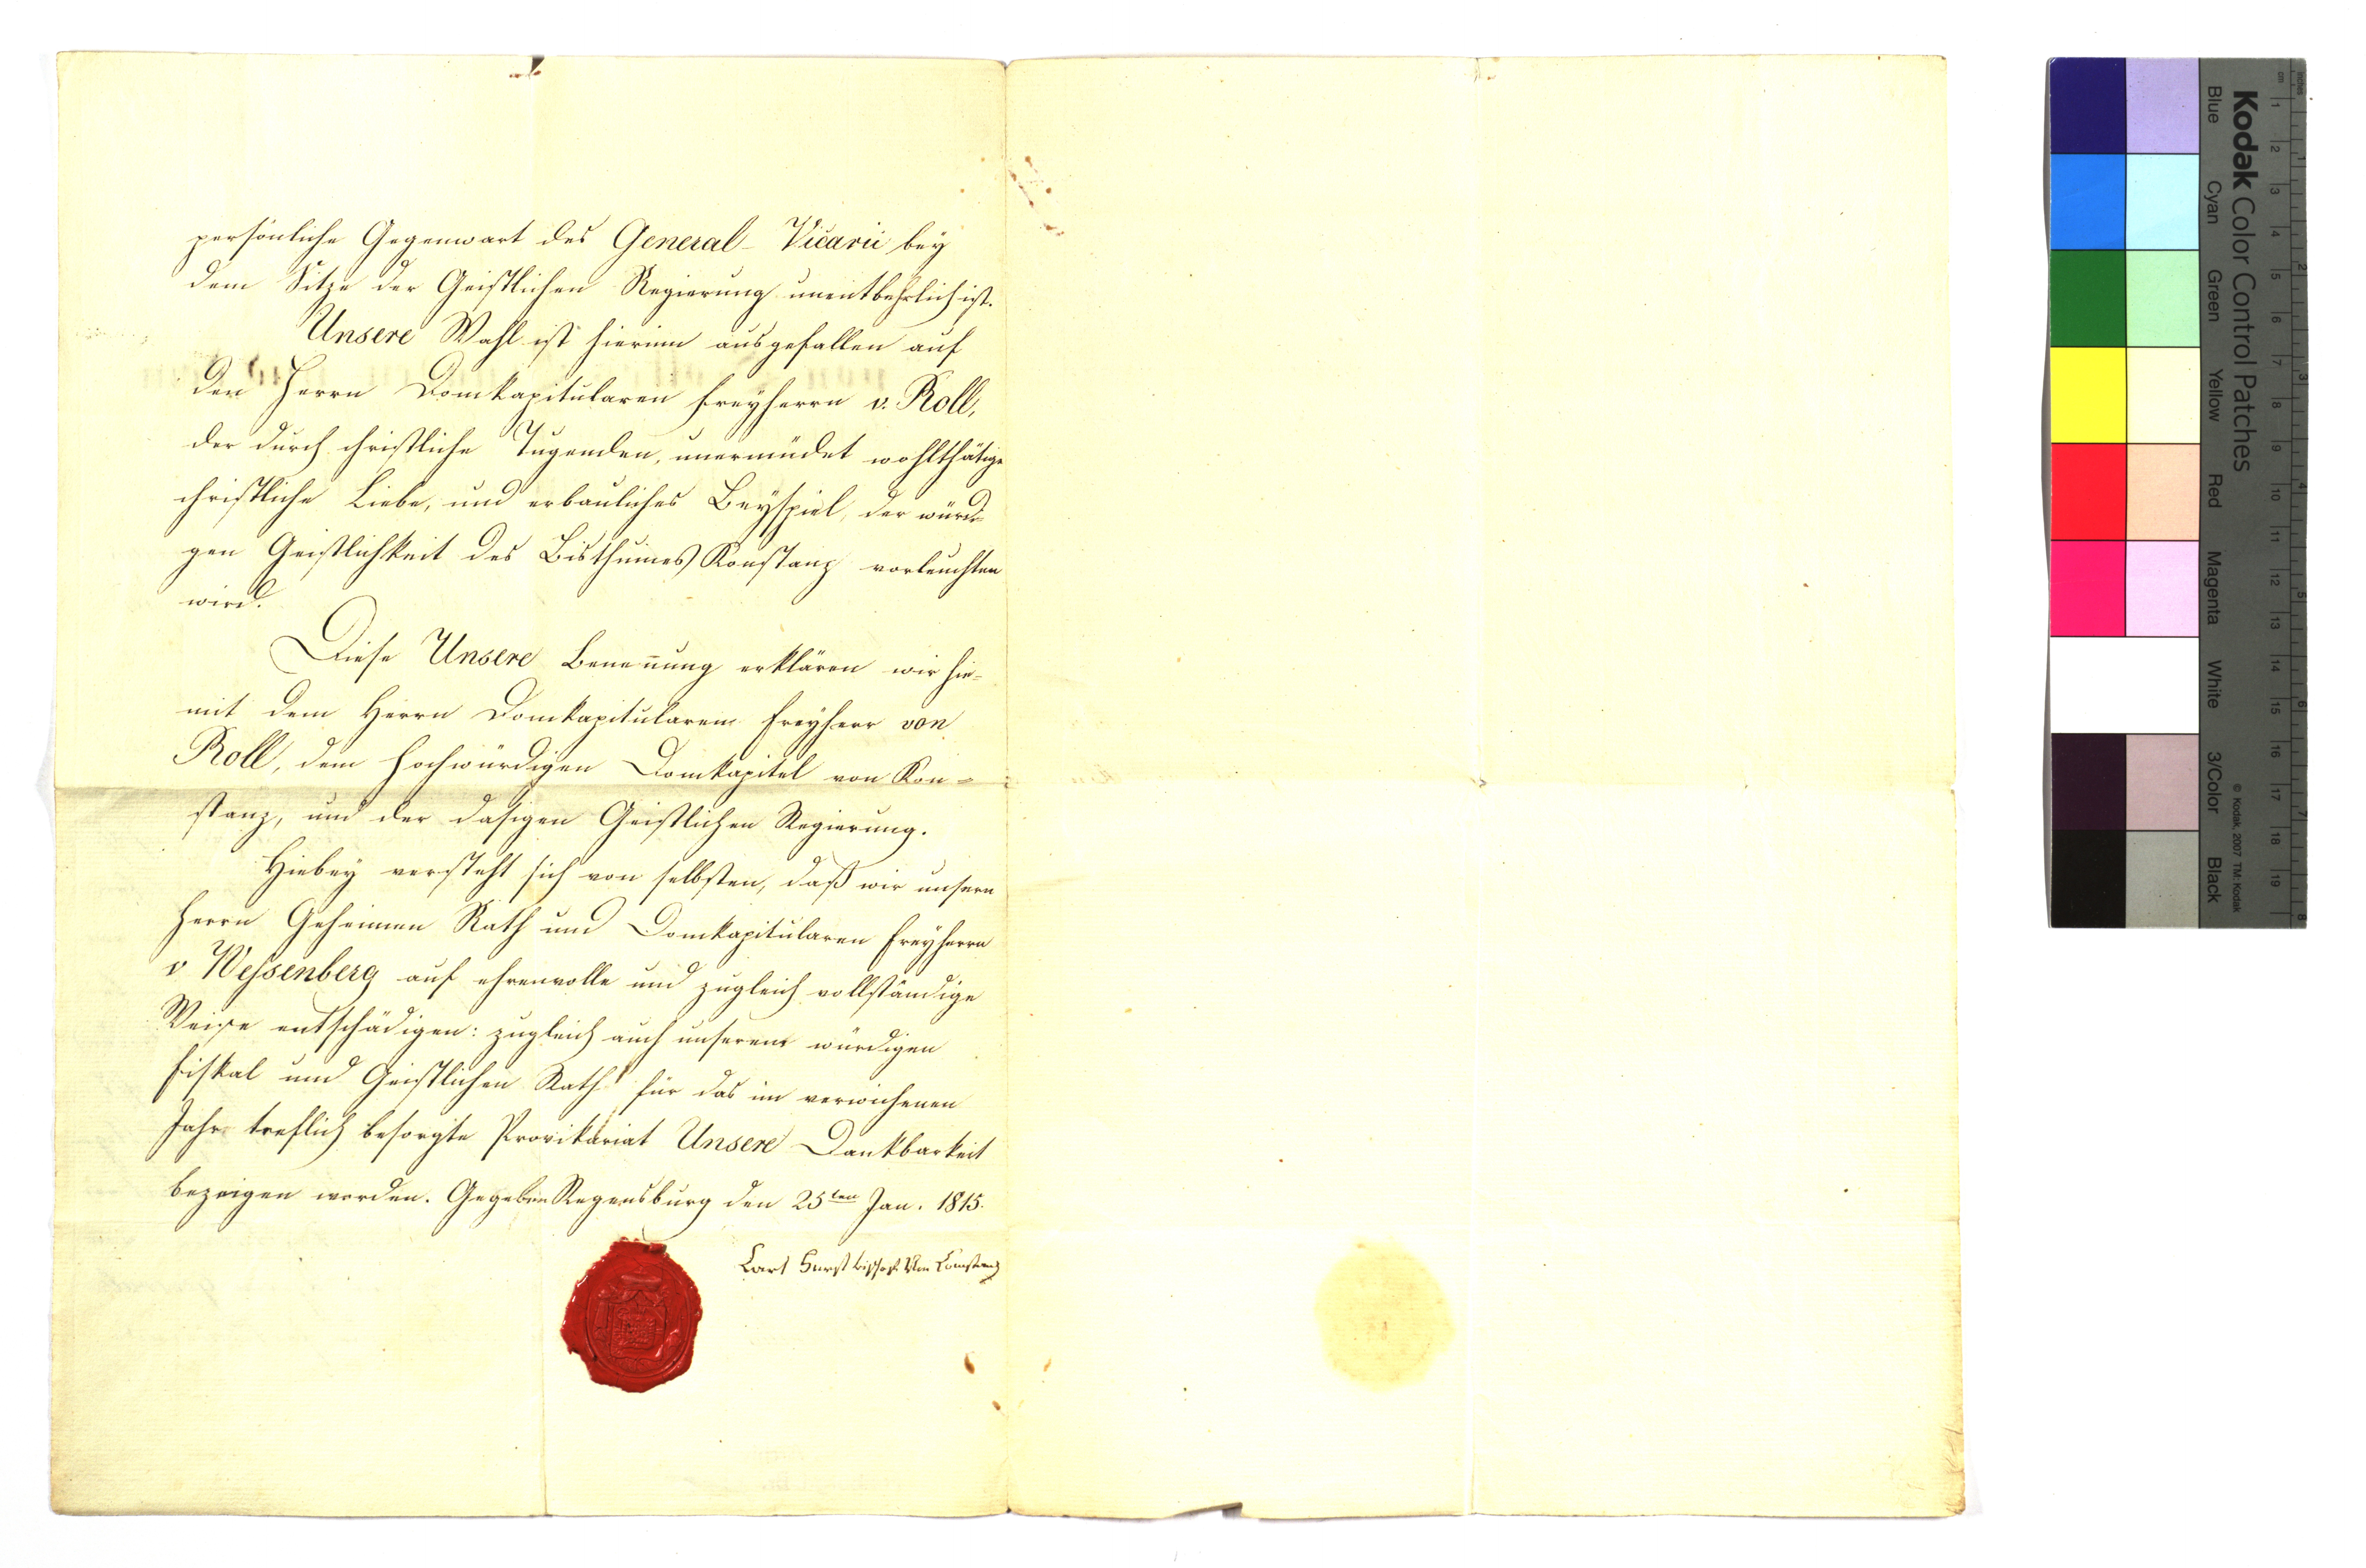 persönliche Gegenwart des General-Vicarii bey
dem Sitze der Geistlichen Regierung unentbehrlich ist.
Unsere Wahl ist hierinn ausgefallen auf
den Herrn Domkapitularen Freyherrn v. Roll,
der durch christliche Tugenden, unermüdet wohlthätige
christliche Liebe, und erbauliches Beyspiel, der würdi-
gen Geistlichkeit des Bisthumes Konstanz vorleuchten
wird.
Diese Unsere Benen̄ung erklären wir hie-
mit dem Herrn Domkapitularen Freyherr von
Roll, dem Hochwürdigen Domkapitel von Kon=
stanz, und der dasigen Geistlichen Regierung.
Hiebey versteht sich von selbsten, daß wir unsern
Herrn Geheimen Rath und Domkapitularen Freyherrn
v Wessenberg auf ehrenvolle und zugleich vollständige
Weise entschädigen: zugleich auch unserem würdigen
Fiskal und Geistlichen Rath für das im verwichenen
Jahr treflich besorgte Provikariat Unsere Dankbarkeit
bezeigen werden. Gegeben Regensburg den 25ten Jan. 1815.
Carl Fürst bischof von Constanz
Kodak Color Control Patches
Blue Cyan Green Yellow Red Magenta White 3/Color Black
© Kodak, 2007 TM: Kodak
inches 1 2 3 4 5 6 7 8
cm 1 2 3 4 5 6 7 8 9 10 11 12 13 14 15 16 17 18 19